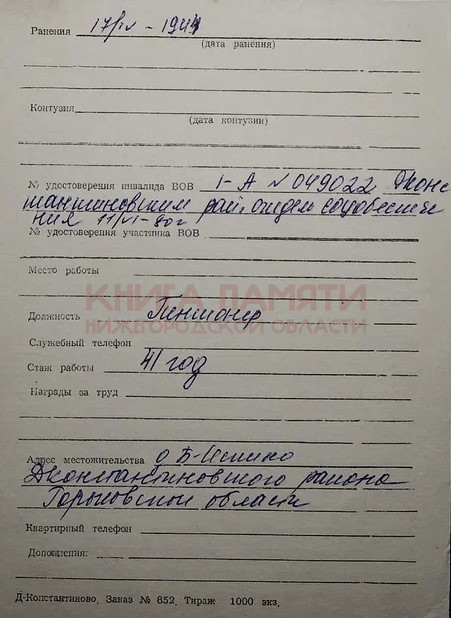 Ранения 17/IV - 1944
(дата ранения)
Контузия
(дата контузии)
№ удостоверения инвалида ВОВ I-А № 049022 Дконс
тантиновским рай. отделом соцобеспече
ния 11/VI-80г
№ удостоверения участника ВОВ
Место работы
КНИГА ПАМЯТИ
НИЖЕГОРОДСКОЙ ОБЛАСТИ
Должность Пенсионер
Служебный телефон
Стаж работы 41 год
Награды за труд
Адрес местожительства
Дконстантиновского района
Горьковской области
Квартирный телефон
Дополнения:
Д-Константиново, Заказ № 852, Тираж 1000 экз.